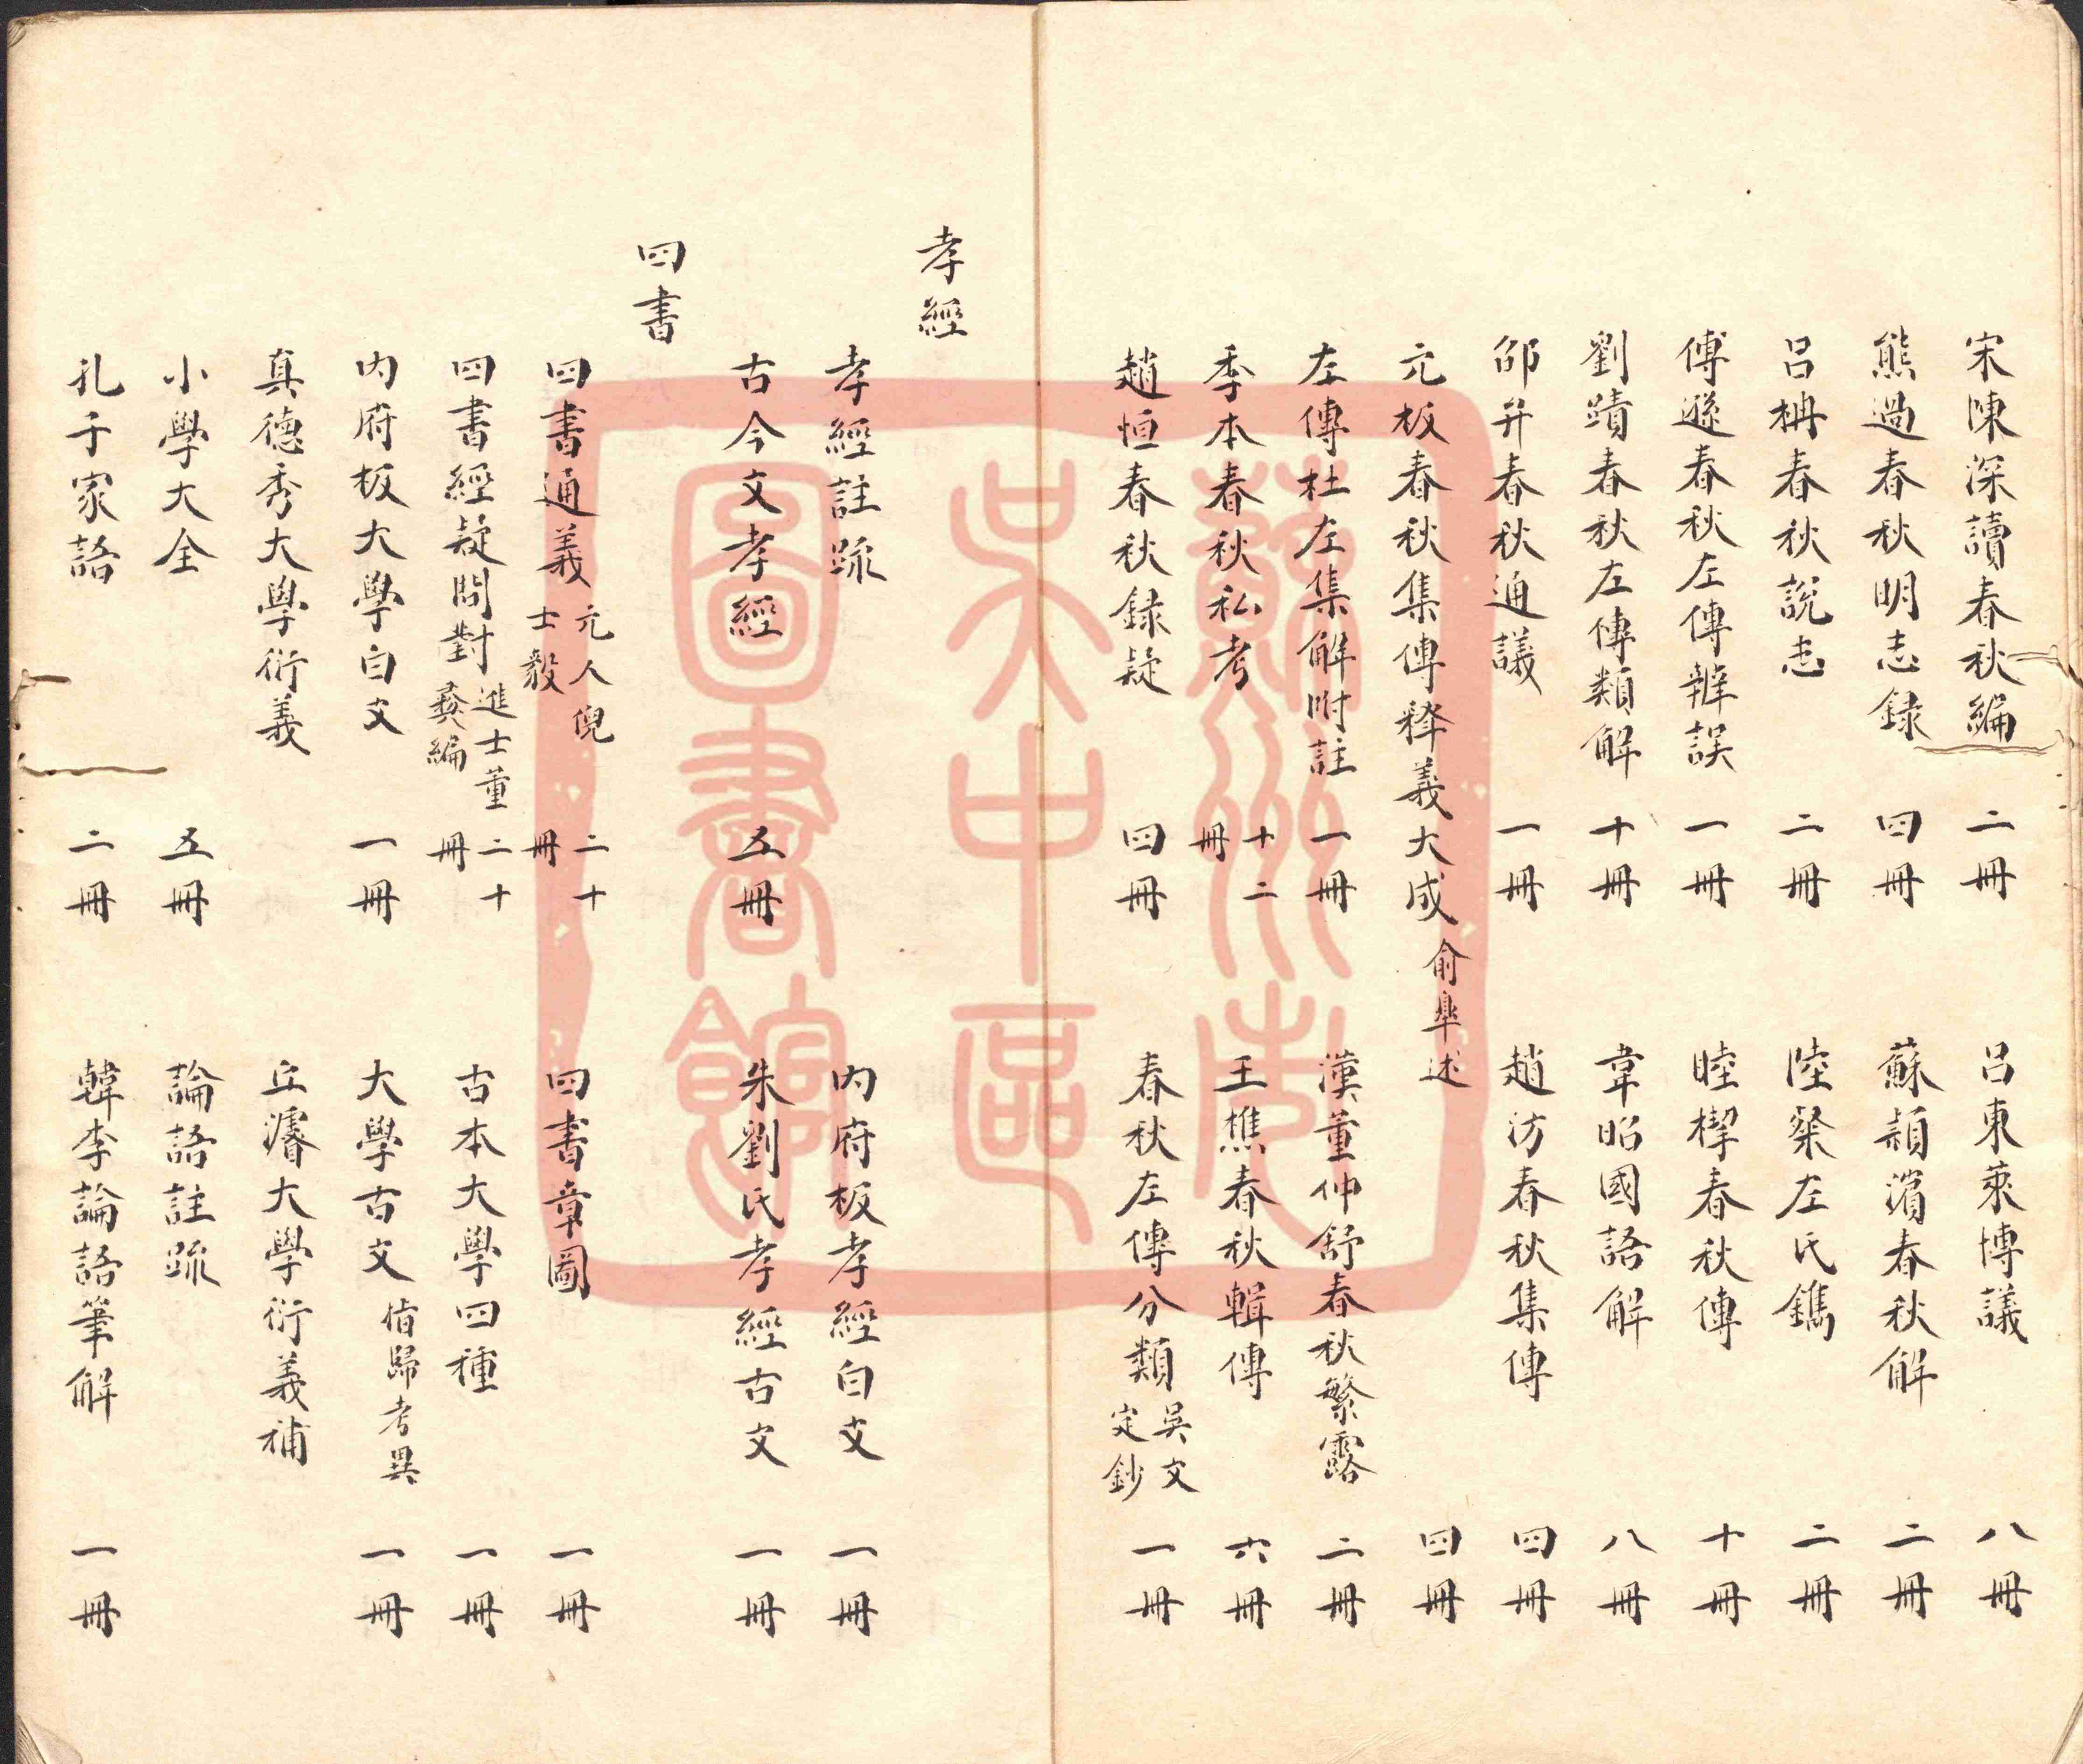 宋陳深讀春秋編 二冊 呂東萊博議 八冊
熊過春秋明志録 四冊 蘇頴濱春秋解 二冊
呂柟春秋說志 二冊 陸粲左氏鐫 二冊
傅遜春秋左傳辨誤 一冊 睦㮮春秋傳 十冊
劉蹟春秋左傳類解 十冊 韋昭國語解 八冊
邵弁春秋通議 一冊 趙汸春秋集傳 四冊
元板春秋集傳釋義大成 俞臯述 四冊
左傳杜左集解附註 一冊 漢董仲舒春秋繁露 二冊
季本春秋私考 十二冊 王樵春秋輯傳 六冊
趙恒春秋録疑 四冊 春秋左傳分類 吳文定鈔 一冊
孝經
孝經註䟽 內府板孝經白文 一冊
古今文孝經 五冊 朱劉氏孝經古文 一冊
四書
四書通義 元人倪士毅 二十冊 四書章圖 一冊
四書經疑問對 進士董彜編 二十冊 古本大學四種 一冊
內府板大學白文 一冊 大學古文 偕歸考異 一冊
真德秀大學衍義 丘濬大學衍義補
小學大全 五冊 論語註䟽
孔子家語 二冊 韓李論語筆解 一冊
蘇州市
吳中區
圖書館